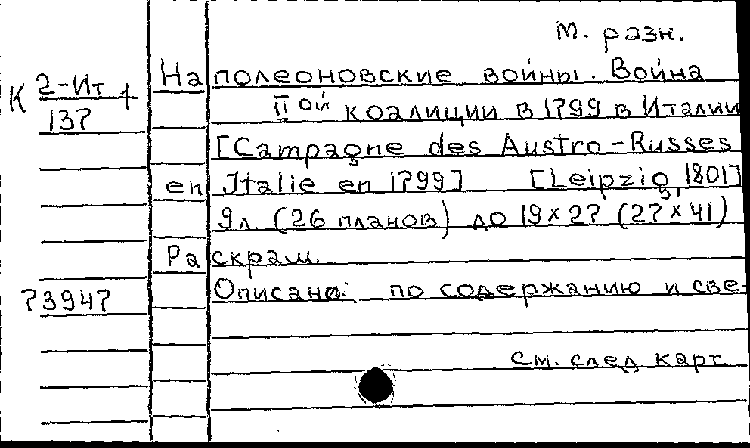 М. разн.
К 2-Ит 1
137
Наполеоновские войны. Война
IIой коалиции в 1799 в Италии
[Campagne des Austro-Russes
en Italie en 1799] [Leipzig, 1801]
9л. (26 планов) до 19×27 (27×41)
Раскраш.
73947
Описано: по содержанию и све-
см. след карт